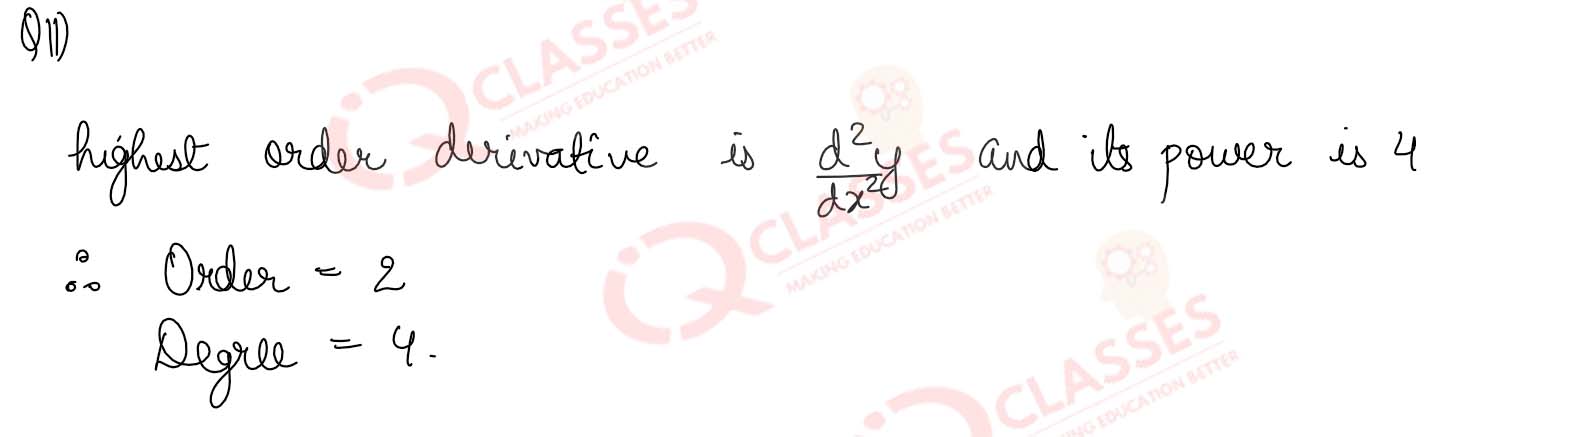 Q11)
highest order derivative is d²y/dx² and its power is 4
∴ Order = 2
Degree = 4.
CLASSES
MAKING EDUCATION BETTER
CLASSES
MAKING EDUCATION BETTER
CLASSES
MAKING EDUCATION BETTER